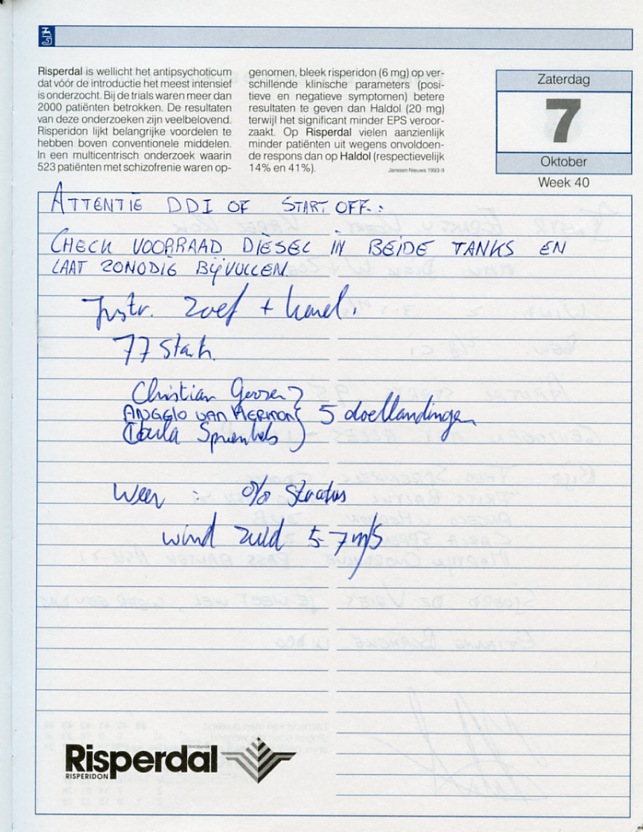 Risperdal is wellicht het antipsychoticum
dat vóór de introductie het meest intensief
is onderzocht. Bij de trials waren meer dan
2000 patiënten betrokken. De resultaten
van deze onderzoeken zijn veelbelovend.
Risperidon lijkt belangrijke voordelen te
hebben boven conventionele middelen.
In een multicentrisch onderzoek waarin
523 patiënten met schizofrenie waren op-
genomen, bleek risperidon (6 mg) op ver-
schillende klinische parameters (posi-
tieve en negatieve symptomen) betere
resultaten te geven dan Haldol (20 mg)
terwijl het significant minder EPS veroor-
zaakt. Op Risperdal vielen aanzienlijk
minder patiënten uit wegens onvoldoen-
de respons dan op Haldol (respectievelijk
14% en 41%).
Janssen Nieuws 1993-II
Zaterdag
7
Oktober
Week 40
ATTENTIE DDI OF START OFF:
CHECK VOORRAAD DIESEL IN BEIDE TANKS EN
LAAT ZONODIG BIJVULLEN
Instr. Zoef + Karel.
77 Starts
Christian
ANGGLO VAN HERMON 5 doellandingen
Carla
Weer : 0/8 Stratus
wind zuid 5-7 m/s
Risperdal
RISPERIDON